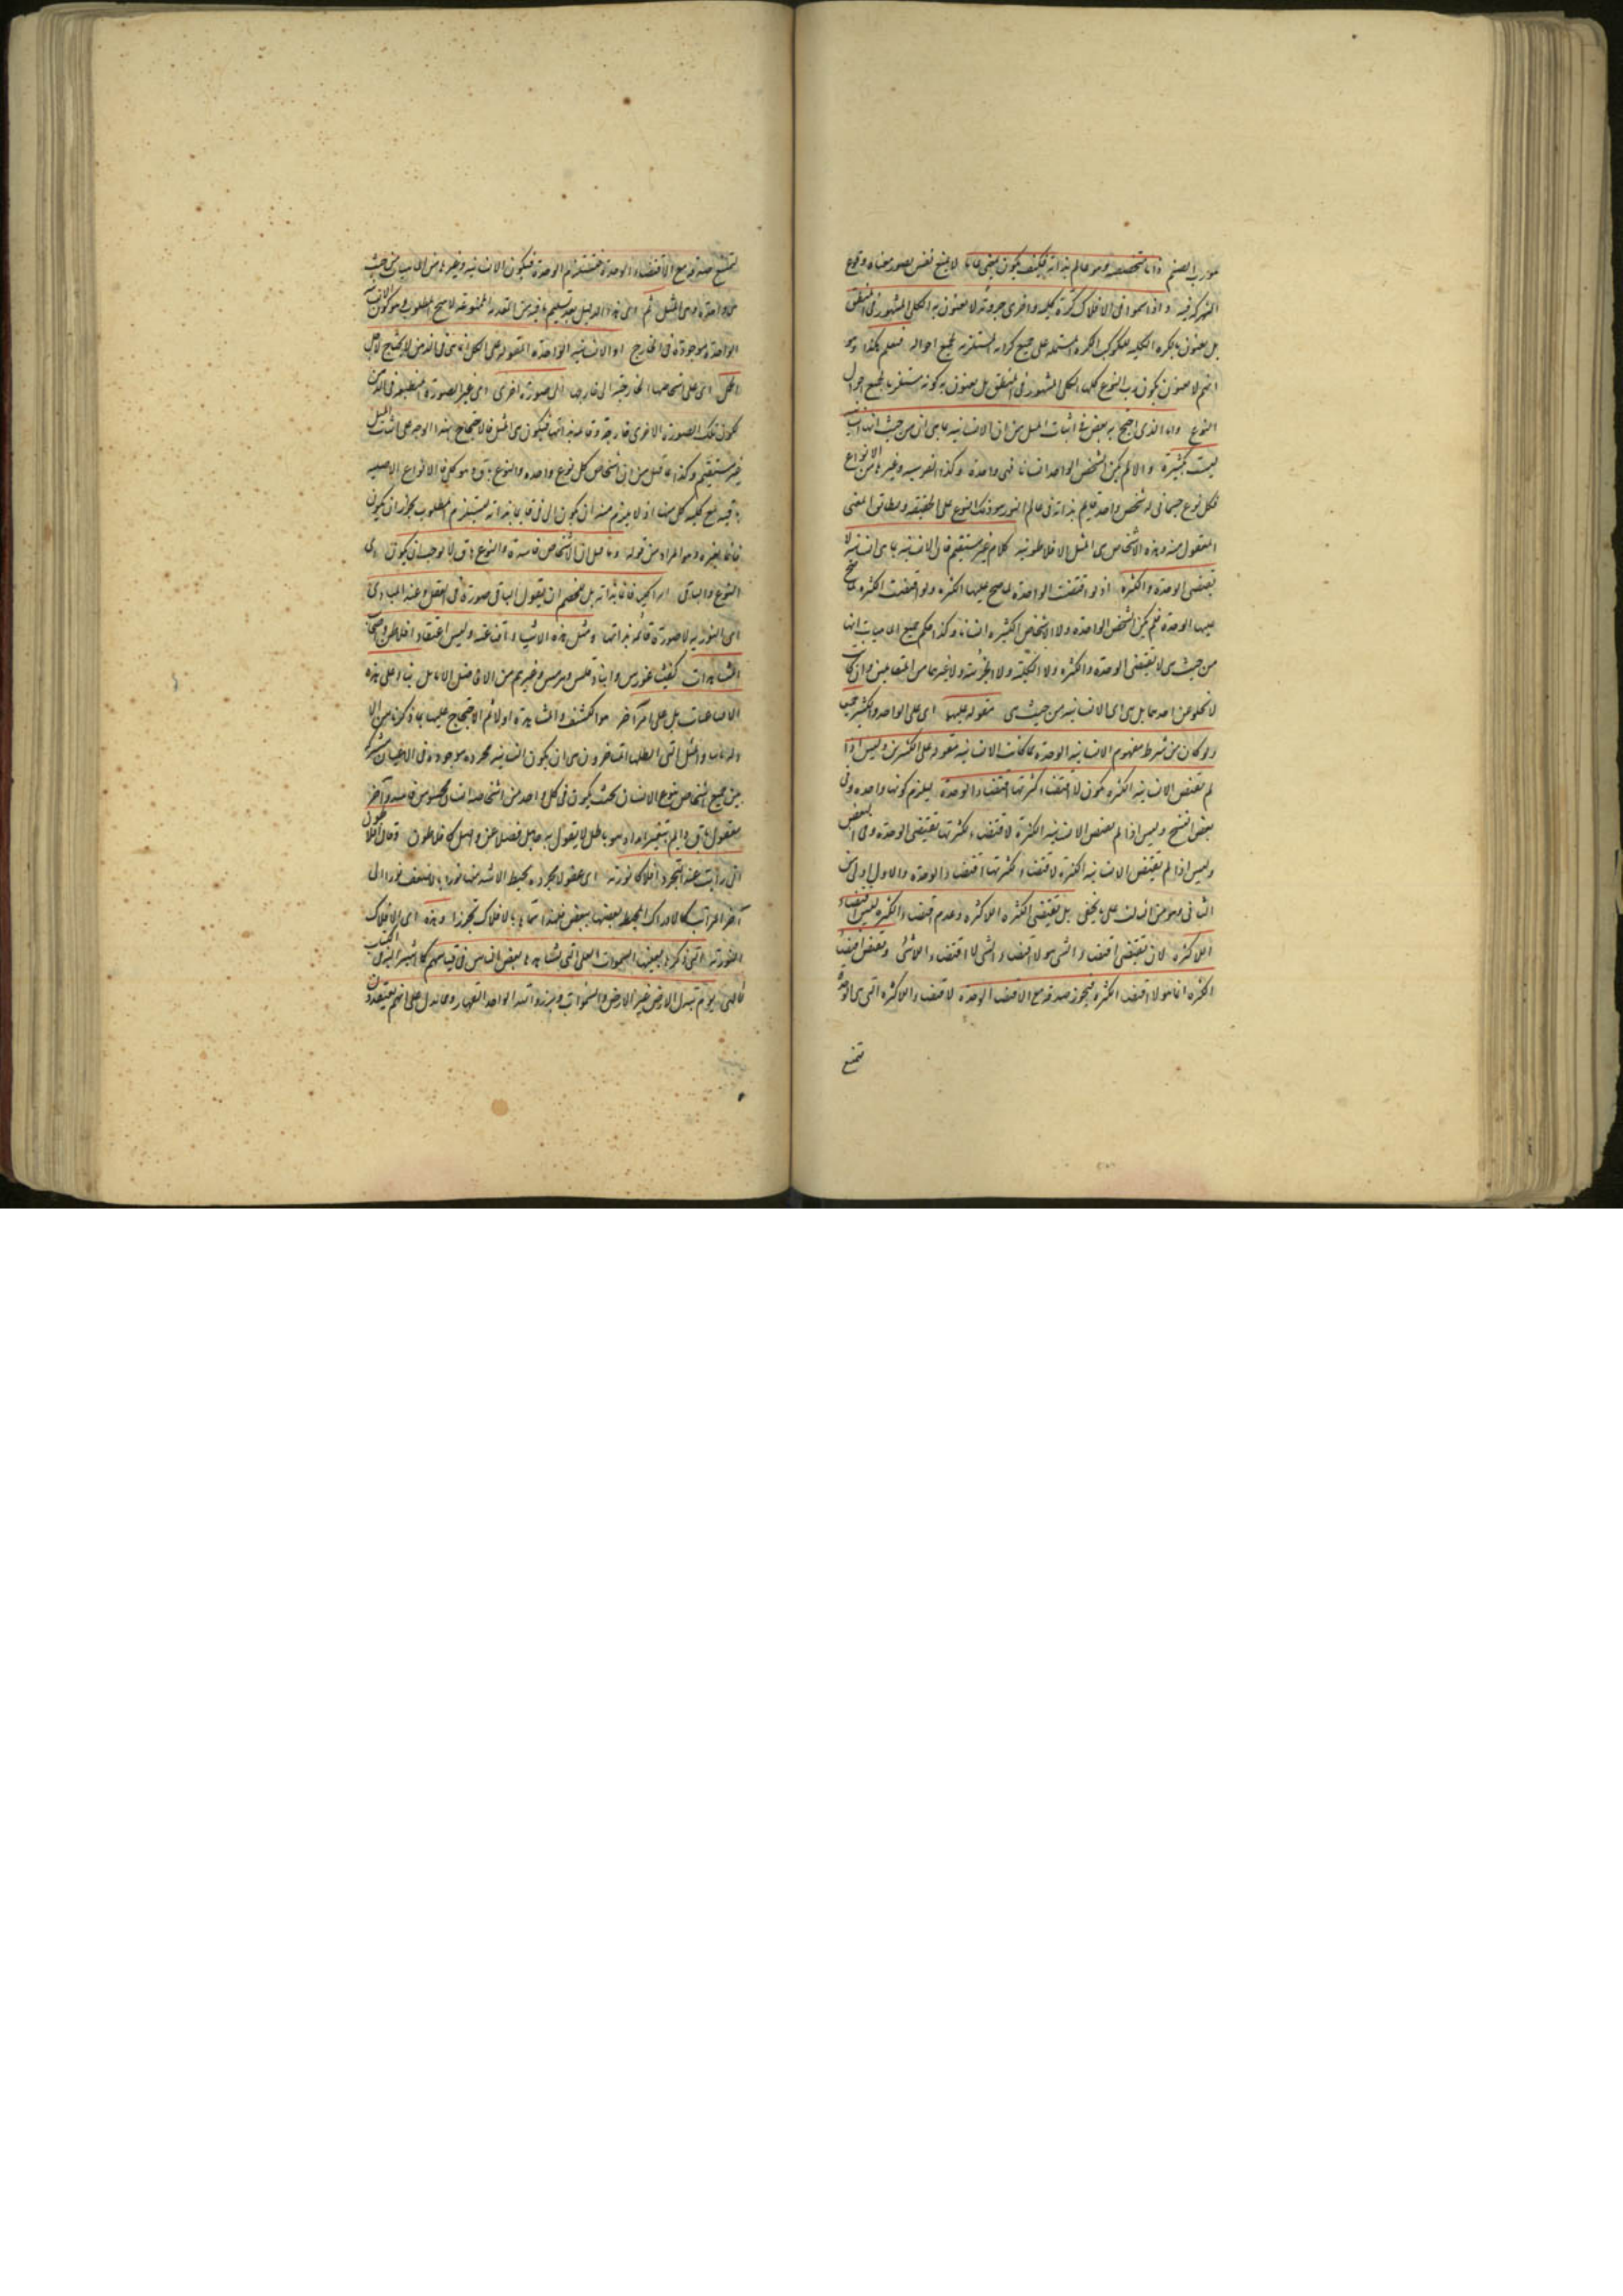 هو رب الصنم ذاتا متخصصة وهو عالم بذاته فكيف يكون معنى عاما لا يمنع نفس تصور معناه وقوع
الشركة فيه واذا سموا فى الافلاك كرة كلية واخرى جزوية لا يعنون به الكلى المشهور فى المنطق
بل يعنون بالكرة الكلية للكوكب الكرة المشتملة على جميع كراته المستلزمة لجميع احواله فتعلم هكذا وهو
انهم لا يعنون بكون رب النوع كليا الكلى المشهور فى المنطق بل يعنون به كونه مستلزما لجميع احوال
النوع واما الذى احتج به بعض فى اثبات المثل من ان الانسانية بما هى انسانية
ليست بكثيرة والا لم يكن الشخص الواحد انسانا فهى واحدة وكذا الفرسية وغيرها من الانواع
فكل نوع جسمانى له شخص واحد قايم بذاته فى عالم النور هو ذلك النوع على الحقيقة ويطابق المعنى
المعقول منه وهذه الاشخاص هى المثل الافلاطونية كلام غير مستقيم فان الانسانية بما هى انسانية لا
تقتضى الوحدة والكثرة اذ لو اقتضت الوحدة لما صح عليها الكثرة ولو اقتضت الكثرة لما صح
عليها الوحدة فلم يكن الشخص الواحد ولا الاشخاص الكثيرة انسانا وكذا حكم جميع الماهيات انها
من حيث هى لا تقتضى الوحدة والكثرة ولا الكلية ولا الجزئية ولا غيرها من المتقابلين وان كانت
لا تخلو عن احدهما بل هى اى الانسانية من حيث هى مقولة عليهما اى على الواحد والكثير جميعا
ولو كان من شرط مفهوم الانسانية الوحدة ما كانت الانسانية مقولة على الكثيرين وليس اذا
لم تقتض الانسانية الكثرة يكون لا اقتضاء كثرتها اقتضاء الوحدة ليلزم كونها واحدة وفى
بعض النسخ وليس اذا لم تقتض الانسانية الكثرة لاقتضاء كثرتها تقتضى الوحدة وفى بعض
وليس اذا لم تقتض الانسانية الكثرة لاقتضاء كثرتها اقتضاء الوحدة والاول اولى من
الثانى وهو من الثالث على ما يخفى بل نقيض الكثرة اللاكثرة وعدم اقتضاء الكثرة ليس اقتضاء
اللاكثرة لان نقيض اقتضاء الشى هو لا اقتضاء الشى لا اقتضاء اللاشى ونقيض اقتضاء
الكثرة انما هو لا اقتضاء الكثرة فيجوز صدقه مع لا اقتضاء الوحدة لا اقتضاء اللاكثرة التى هى الوحدة
تمتنع
لتمتنع صدقه مع لا اقتضاء الوحدة فيستلزم الوحدة فيكون الانسانية وغيرها من الماهيات من حيث
هى واحدة وهى المثل ثم ان هذا الدليل بعد تسليم ما فيه من المقدمة الممنوعة لا ينتج المطلوب وهو كون الانسانية
الواحدة موجودة فى الخارج اذ الانسانية الواحدة المقولة على الكل انما هى فى الذهن لا يحتاج لاجل
الحمل اى على اشخاصها الخارجية الى خارجها الى صورة اخرى اى غير الصورة المنطبعة فى الذهن
لكون تلك الصورة الاخرى خارجة وقايمة بذاتها فيكون هى المثل فالاحتجاج بهذا الوجه على اثبات المثل
غير مستقيم وكذا ما قيل من ان اشخاص كل نوع واحدة والنوع باق وهو كلى فالانواع الاصلية
باقية مع كلية كل منها اذ لا يلزم منه ان يكون الباقى قايما بذاته ليستلزم المطلوب لجواز ان يكون
قايما بغيره وهو المراد من قوله وما قيل ان الاشخاص فاسدة والنوع باق لا يوجب ان يكون اى
النوع والباقى امرا كليا قايما بذاته بل للخصم ان يقول الباقى صورة فى العقل وعند المبادى
اى النورية لا صورة قائمة بذاتها ومثل هذه الاشياء اقناعية وليس اعتقاد افلاطن واصحاب
المشاهدات كفيثاغورس وانباذقلس وهرمس وغيرهم من الافاضل الاماثل بناء على هذه
الاقناعيات بل على امر آخر هو الكشف والمشاهدة اولا ثم الاحتجاج عليها بما ذكرنا من
والمثل التى ابطلها المتاخرون هى ان يكون انسانية مجردة موجودة فى الاعيان مشتركة
بين جميع اشخاص نوع الانسان بحيث يكون فى كل واحد من اشخاصه انسان محسوس فاسد وآخر
معقول باق دايم لا يتغير ابدا وهو باطل لا يقول به جاهل فضلا عن فاضل كافلاطون وقال افلاطون
انى رايت عند التجرد افلاكا نورية اى عقولا مجردة محيط الاشد منها نورا بالاضعف نورا الى
آخر المراتب كالافلاك المحيط بعضها ببعض فلهذا سماها بالافلاك تجوزا وهذه اى الافلاك
النورية التى ذكرها بعينها السموات العلى التى يشاهدها بعض الناس فى قيامتهم كما اشير اليه فى الكتاب
الالهى يوم تبدل الارض غير الارض والسموات وبرزوا لله الواحد القهار ومما يدل على انهم يعتقدون